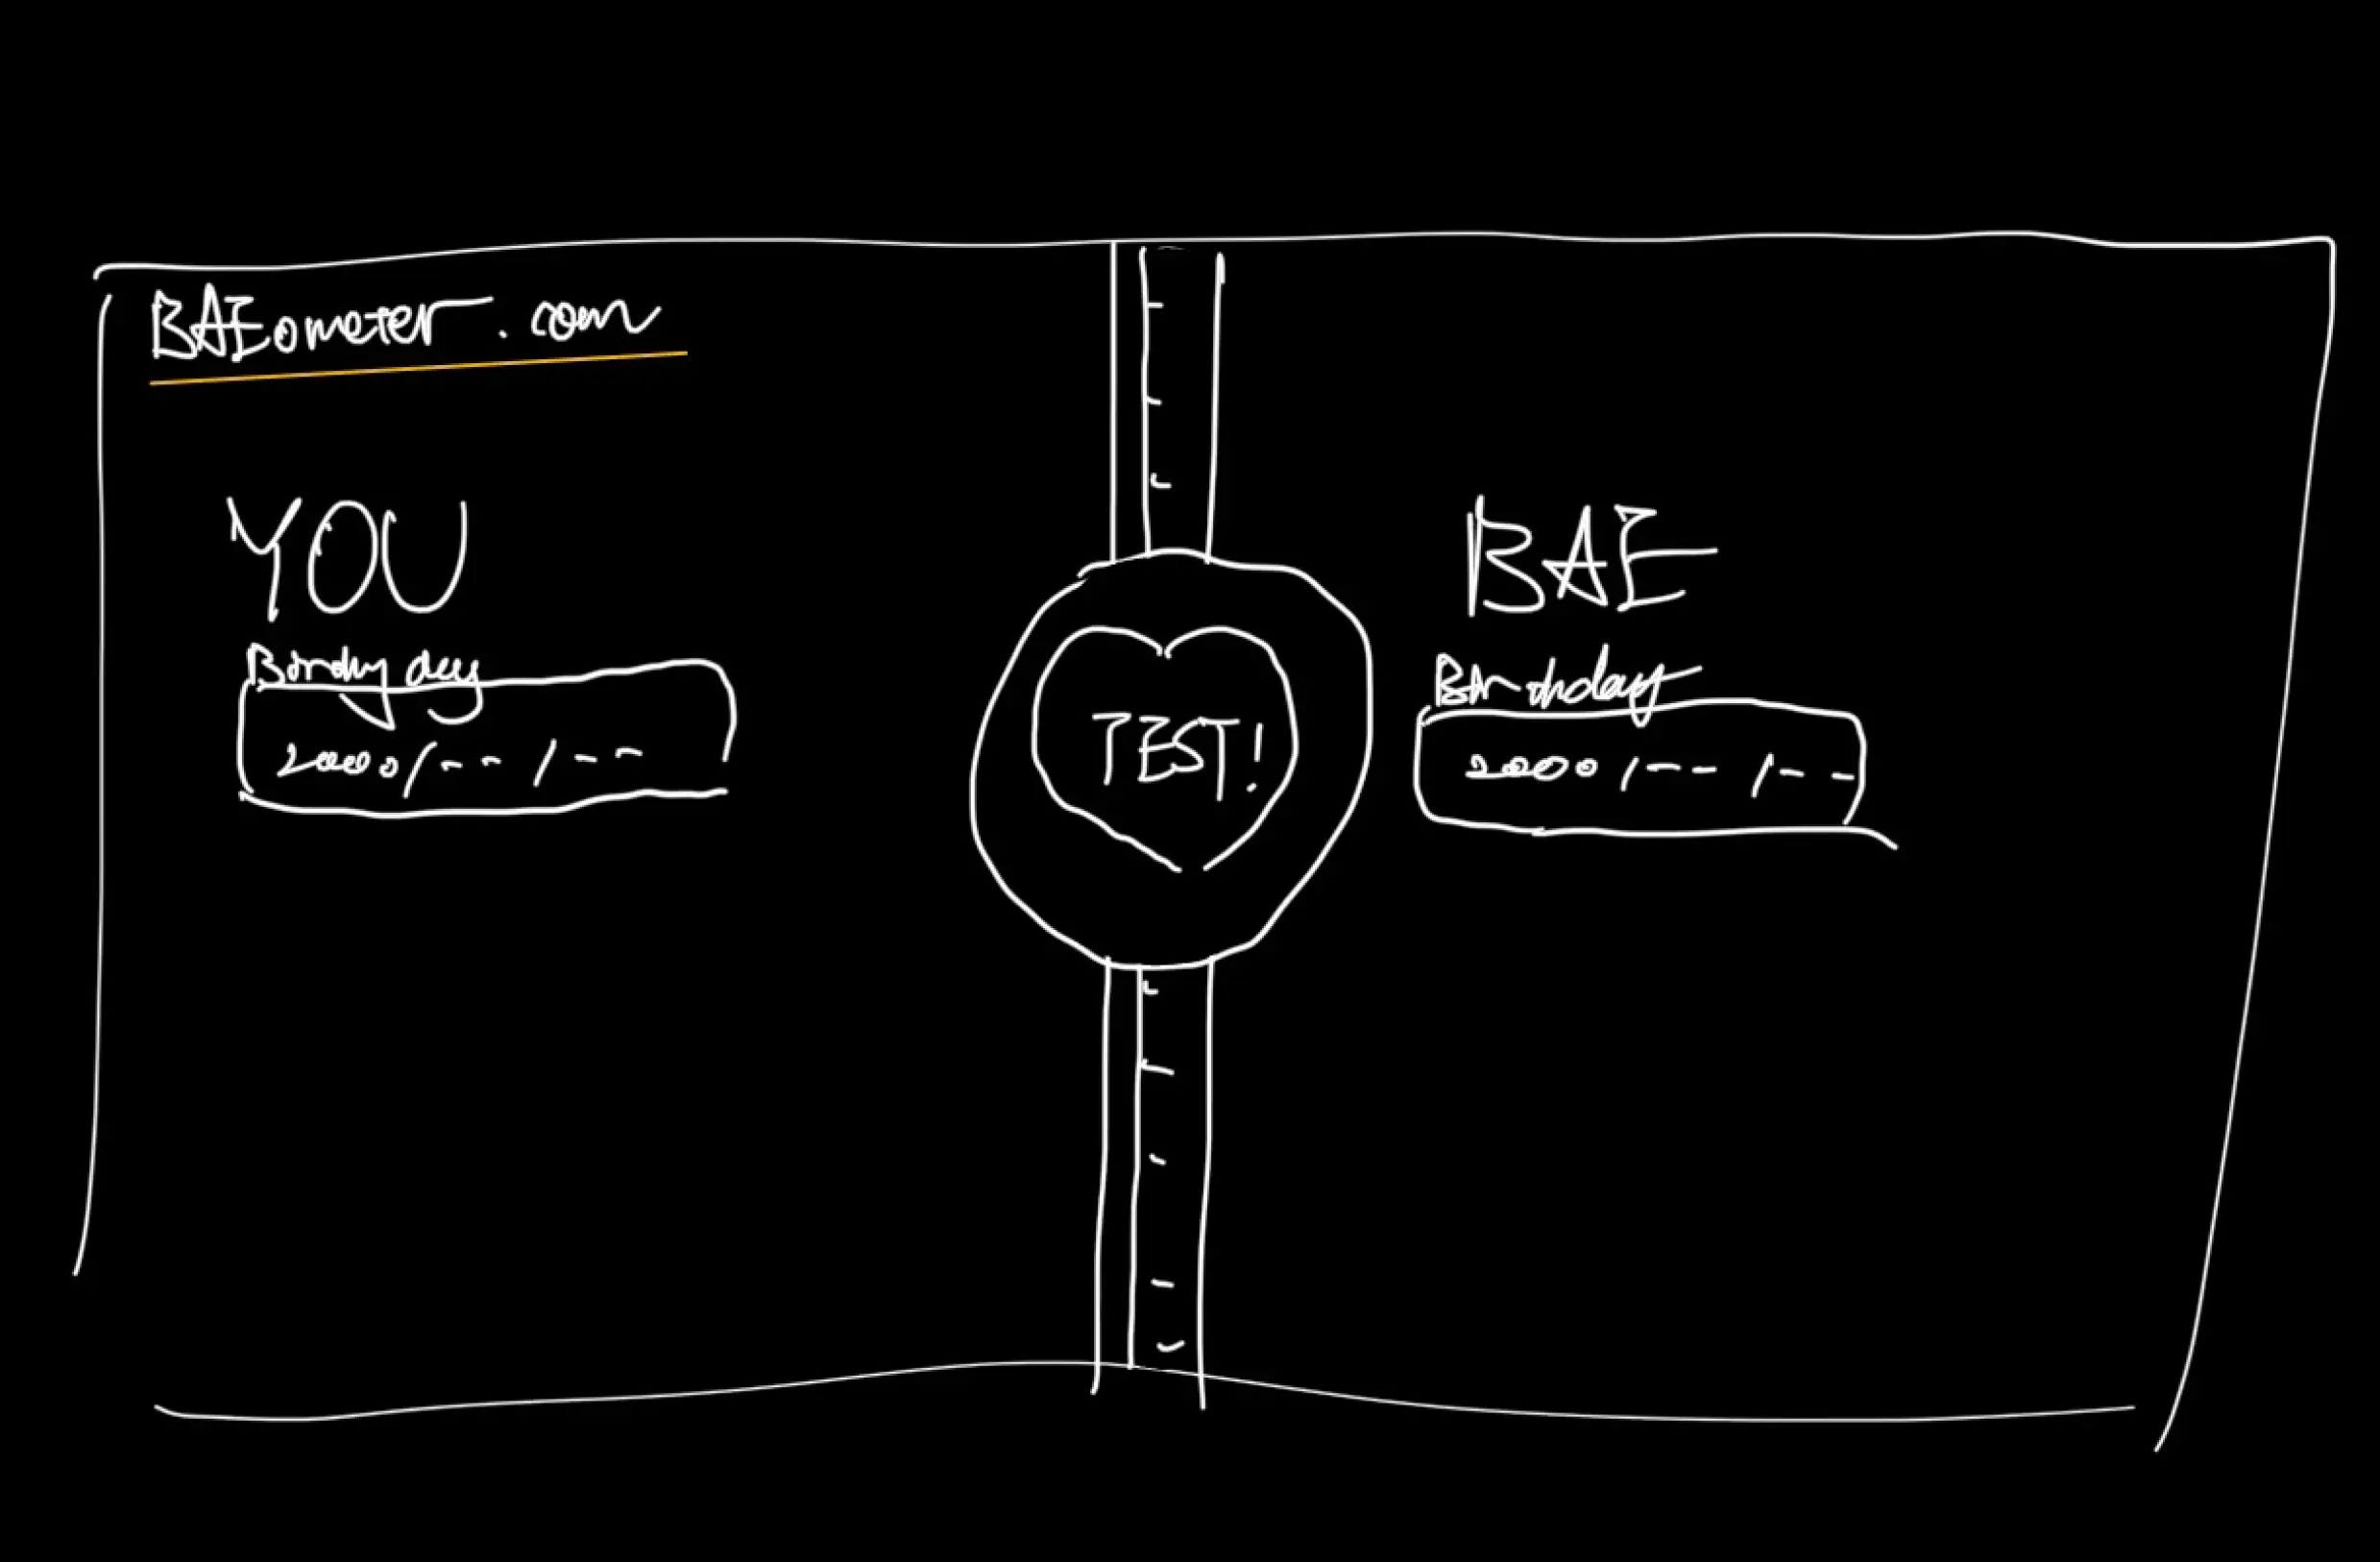 BAEometer.com
YOU
Birthday
2000/--/--
TEST!
BAE
Birthday
2000/--/--